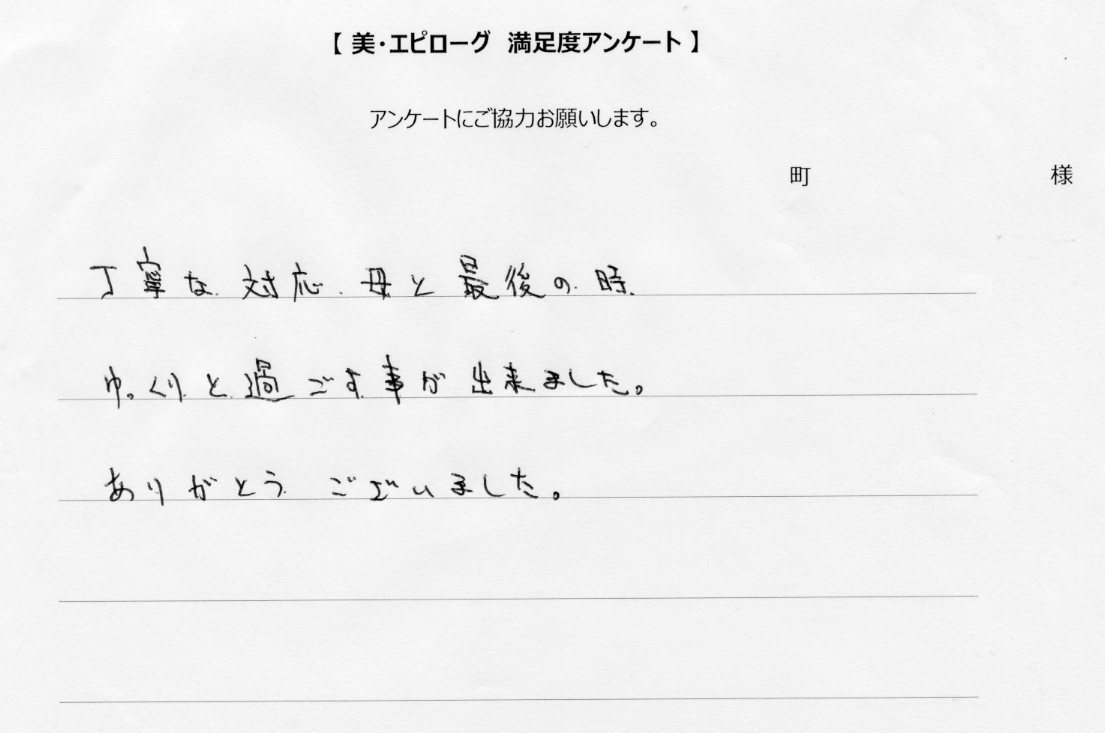 【 美・エピローグ 満足度アンケート 】
アンケートにご協力お願いします。
町 様
丁寧な対応、母と最後の時、
ゆっくりと過ごす事が出来ました。
ありがとうございました。